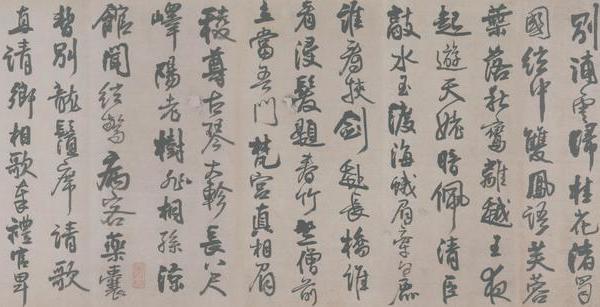 別浦雲歸桂花渚蜀
國絃中雙鳳語芙蓉
葉落秋鸞離越王夜
起遊天姥暗佩清臣
敲水玉渡海蛾眉牽白鹿
誰看挾劍赴長橋誰
看浸髮題春竹竺僧前
立當吾門梵宮真相眉
稜尊古琴大軫長八尺
嶧陽老樹非桐孫涼
館聞絃驚病客藥囊
暫別龍鬚席請歌
直請卿相歌奉禮官卑